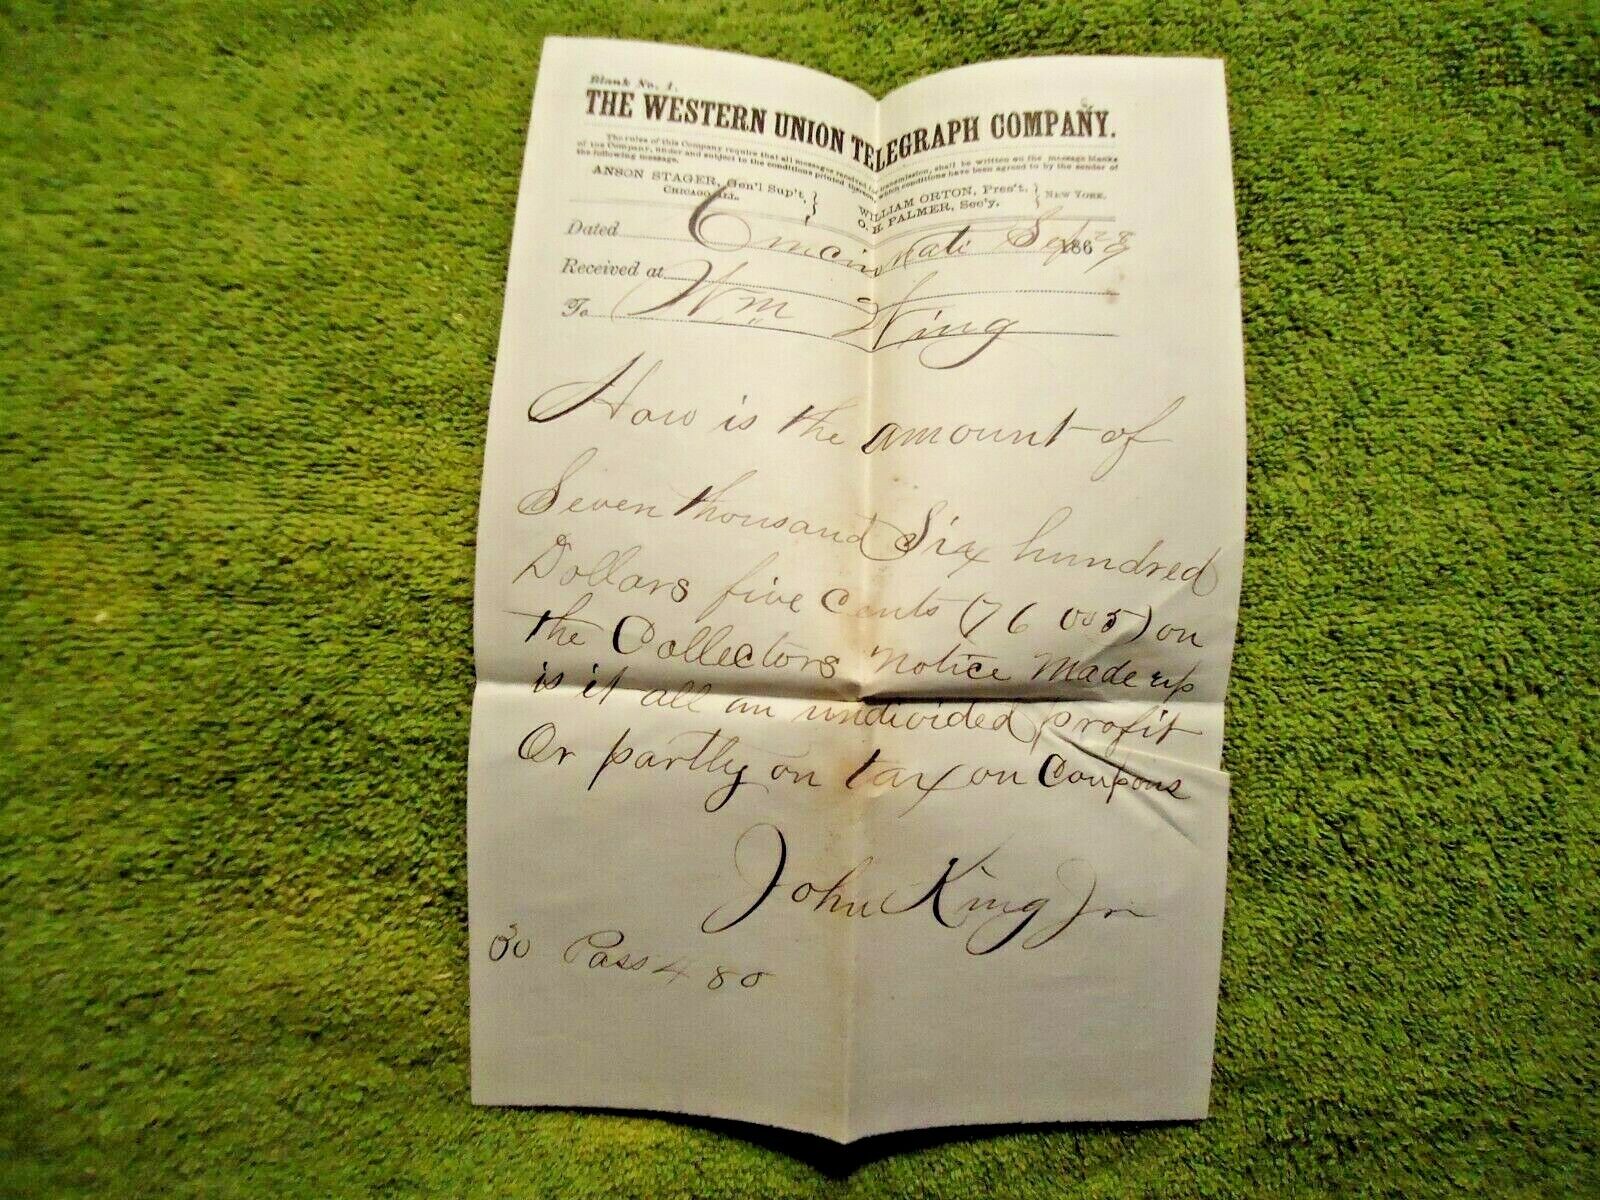 Blank No. 1.
THE WESTERN UNION TELEGRAPH COMPANY.
The rules of this Company require that all messages received for transmission, shall be written on the message blanks
of the Company, under and subject to the conditions printed thereon, which conditions have been agreed to by the sender of
the following message.
ANSON STAGER, Gen'l Sup't, } WILLIAM ORTON, Pres't. } NEW YORK.
CHICAGO, ILL. O. H. PALMER, Sec'y.
Dated Cincinnati Sept 28 1869
Received at
To Wm Wing
How is the amount of
Seven thousand Six hundred
Dollars five Cents (76 005) on
the Collectors Notice Made up
is it all an undivided profit
Or partly on tax on Coupons
John King Jr
30 Pass 4 80